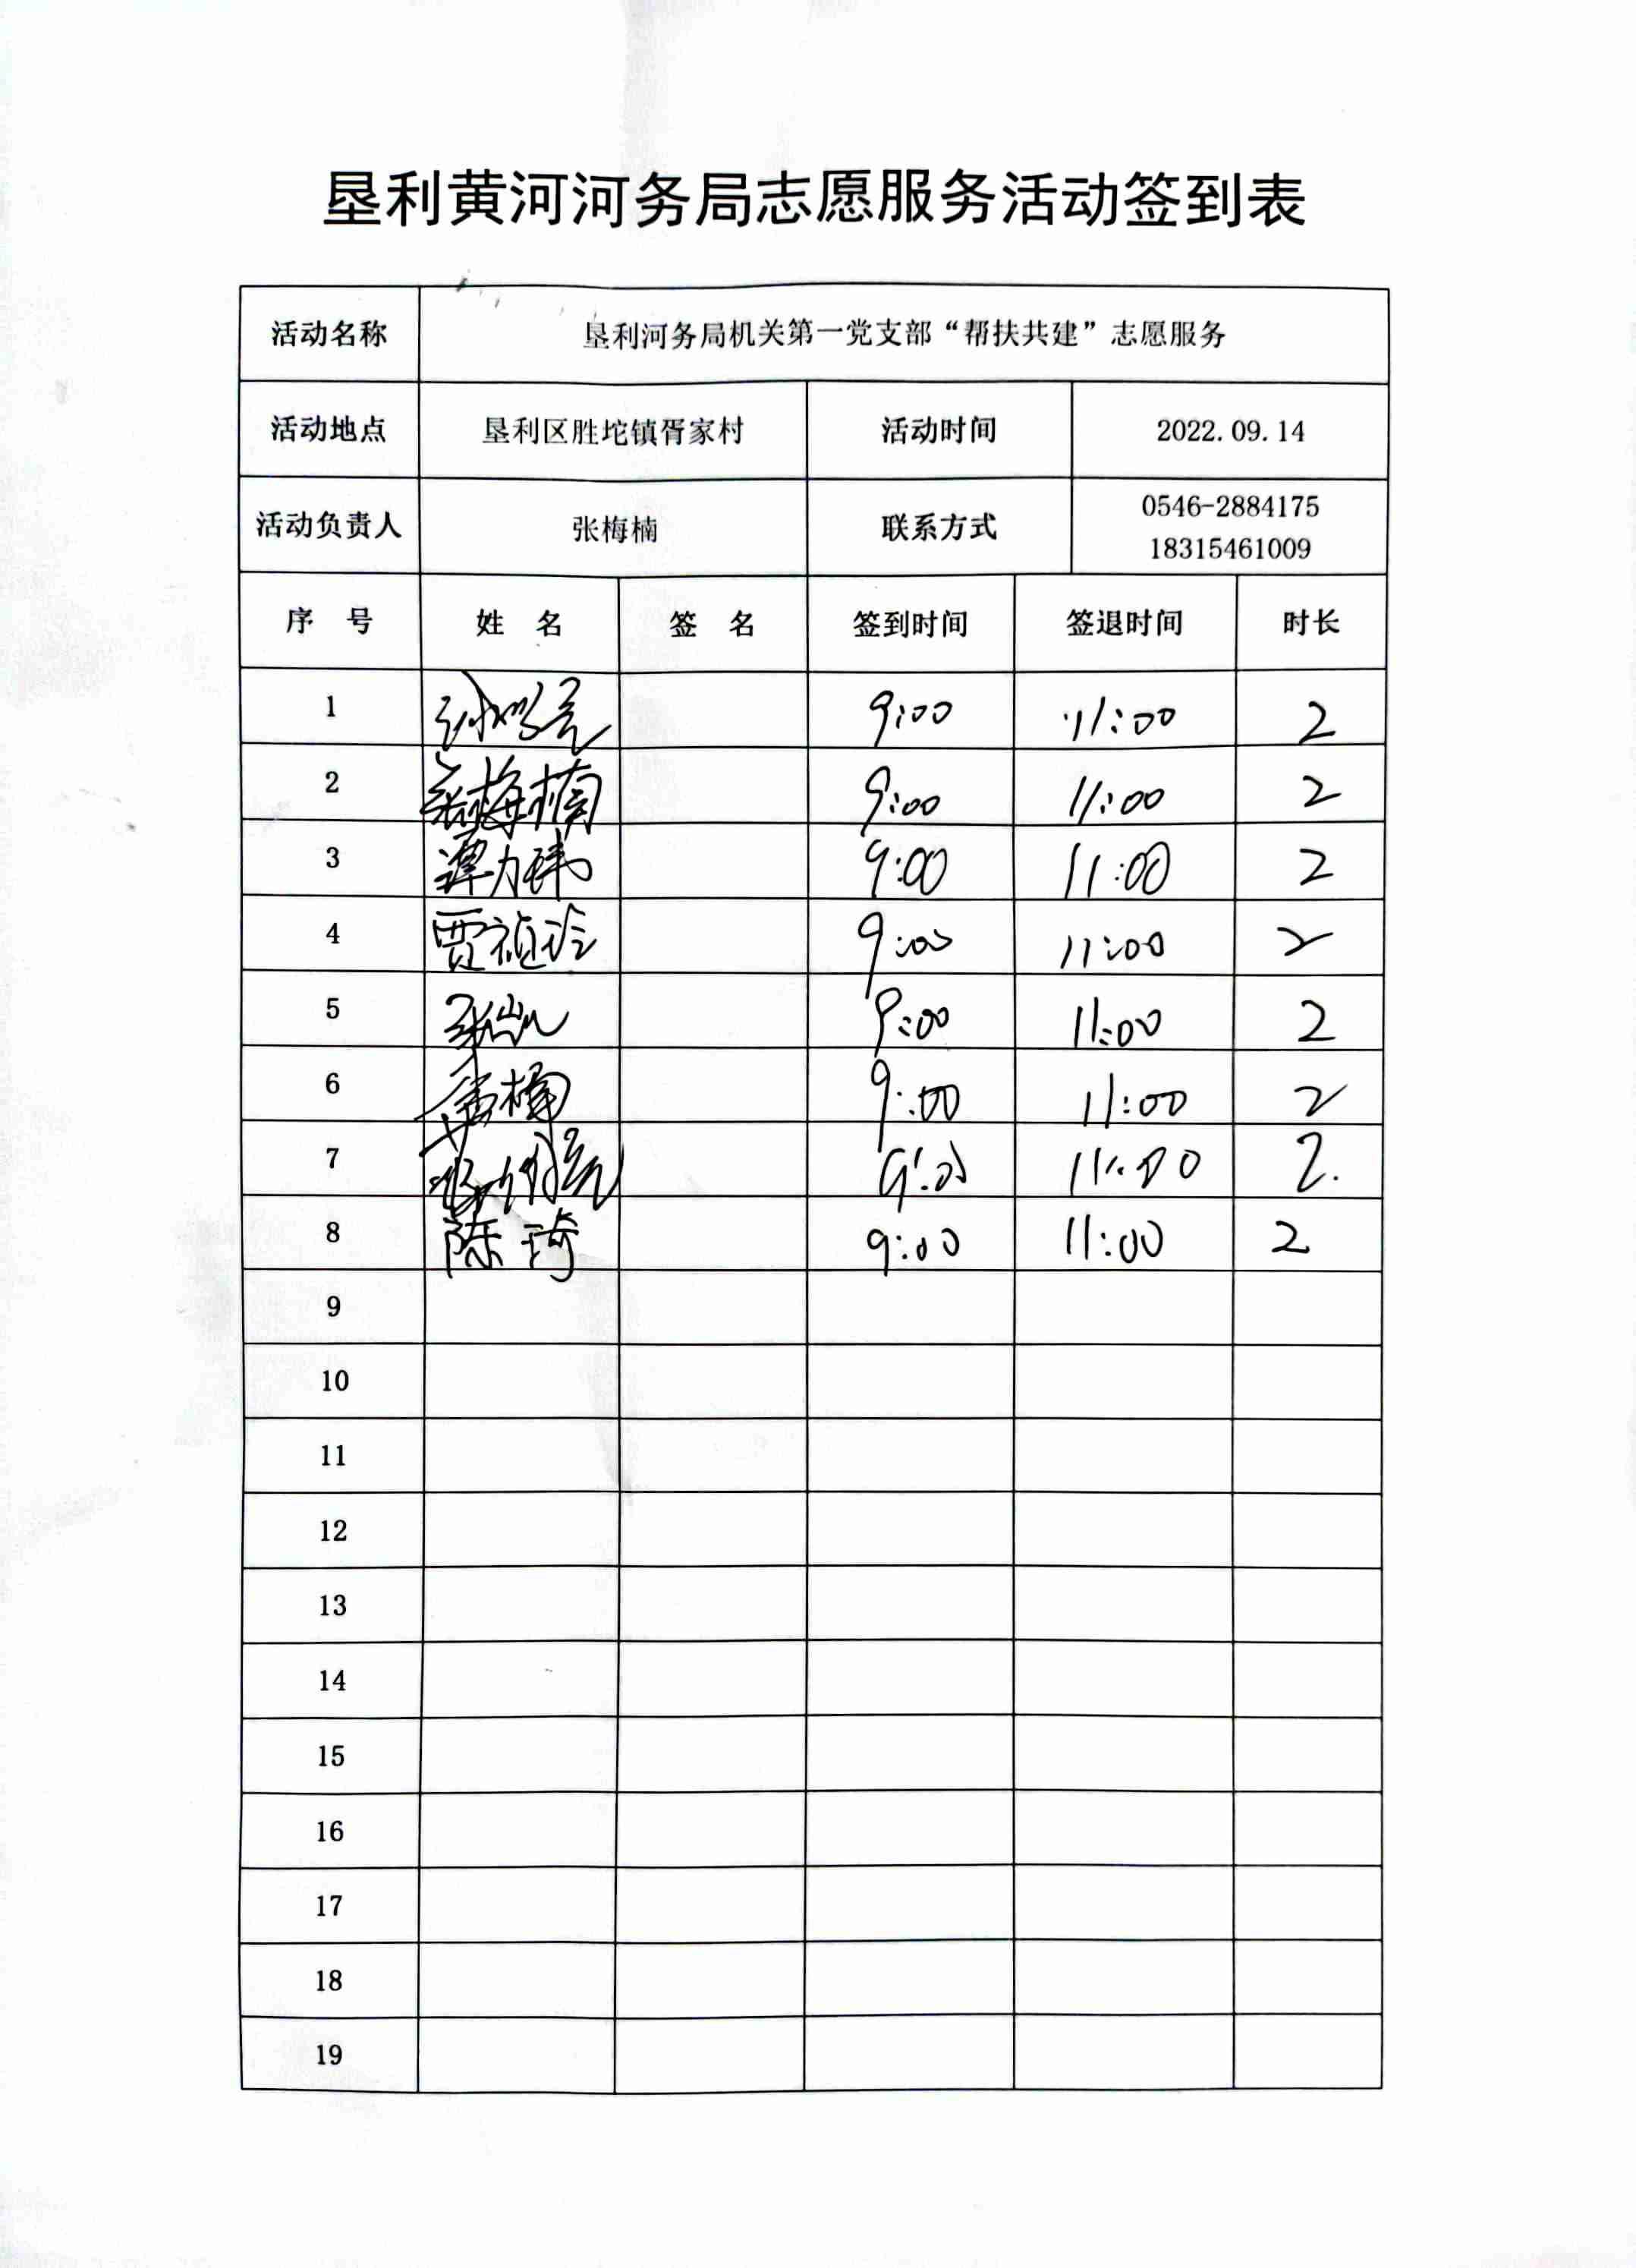 垦利黄河河务局志愿服务活动签到表
活动名称 垦利河务局机关第一党支部“帮扶共建”志愿服务
活动地点 垦利区胜坨镇胥家村 活动时间 2022.09.14
活动负责人 张梅楠 联系方式 0546-2884175
18315461009
序 号 姓 名 签 名 签到时间 签退时间 时长
1 9:00 11:00 2
2 张梅楠 9:00 11:00 2
3 谭力玮 9:00 11:00 2
4 贾祯玲 9:00 11:00 2
5 张凯 9:00 11:00 2
6 楠 9:00 11:00 2
7 9:00 11:00 2.
8 陈琦 9:00 11:00 2
9
10
11
12
13
14
15
16
17
18
19